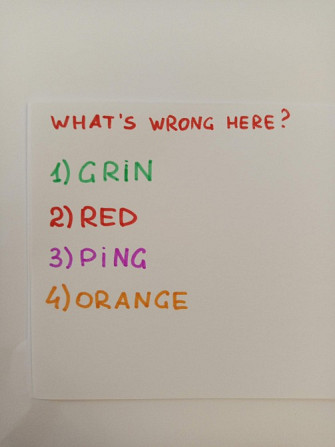 WHAT'S WRONG HERE?
1) GRiN
2) RED
3) PiNG
4) ORANGE